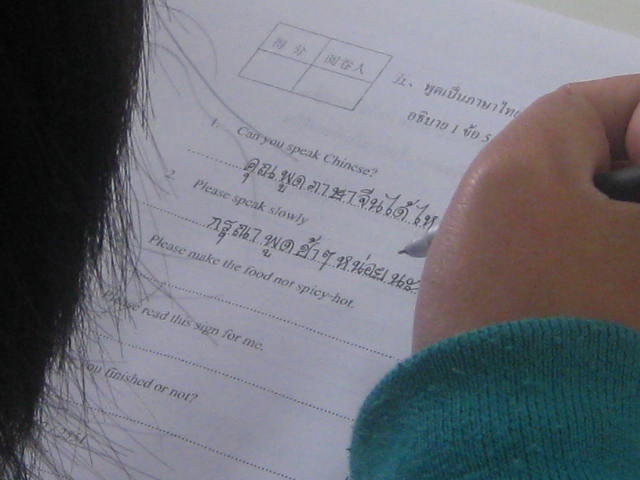 得 分 阅卷人
五、 พูดเป็นภาษาไทย
อธิบาย 1 ข้อ 5
1. Can you speak Chinese?
คุณพูดภาษาจีนได้ไห
2. Please speak slowly
กรุณาพูดช้าๆหน่อยนะ
Please make the food not spicy-hot.
Please read this sign for me.
you finished or not?